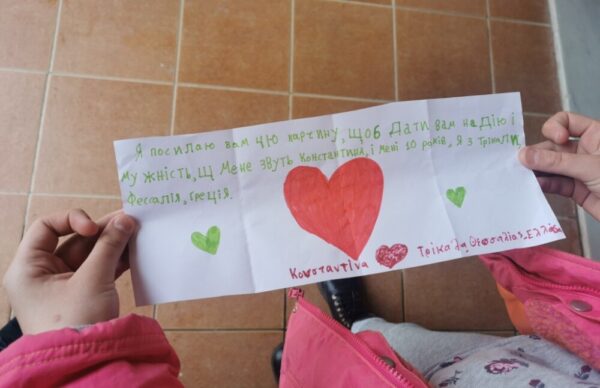 Я посилаю вам цю картину, щоб Дати вам наДію і
мужність, щ Мене звуть Константина, і мені 10 років, Я з Трікали,
Фессалія, Греція.
Κωνσταντίνα Τρίκαλα Θεσσαλίας, Ελλάδα